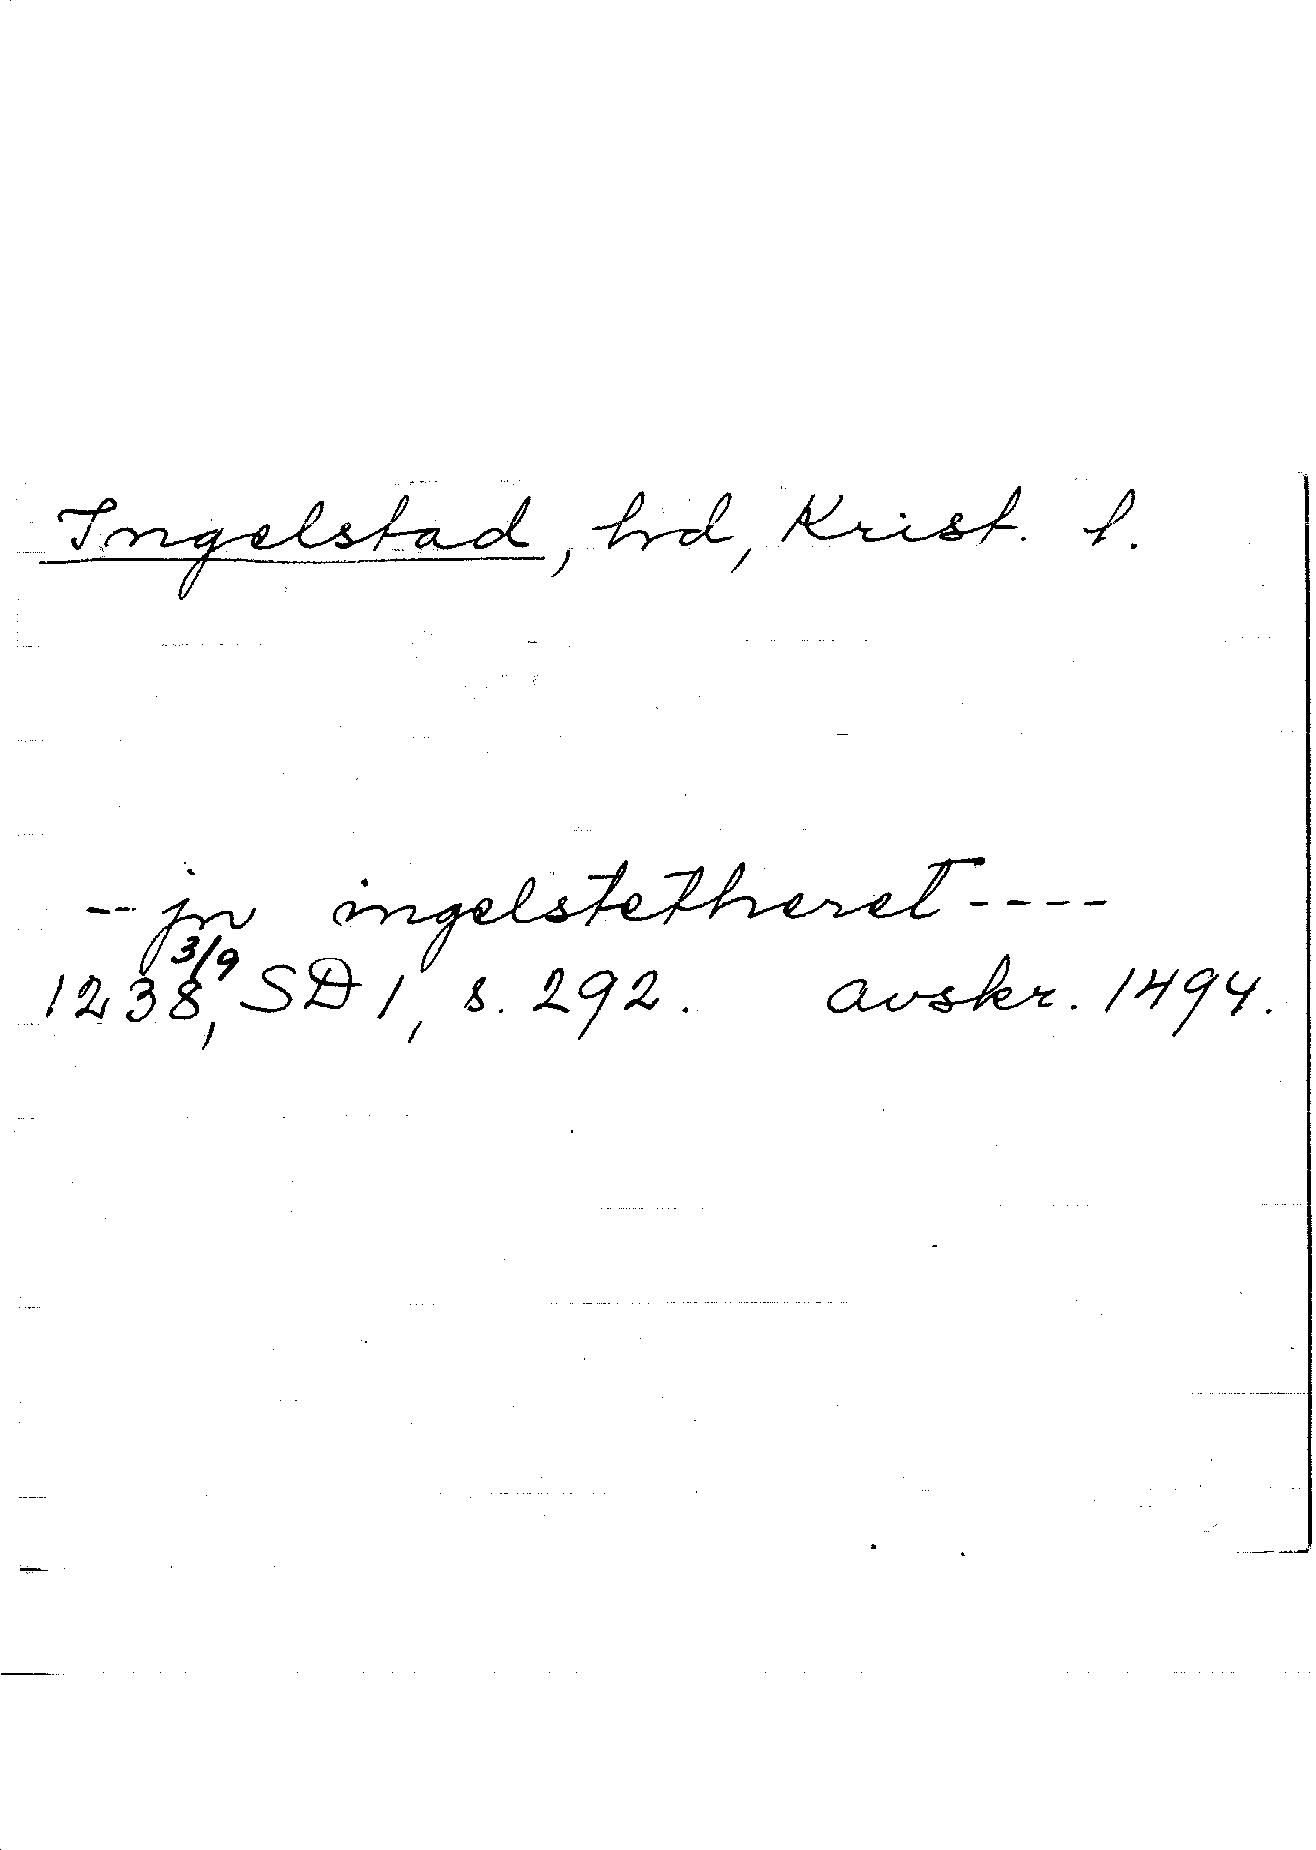 Ingelstad, hd, Krist. l.
-- jn ingelstetheret ----
1238 3/9, SD 1, s. 292. avskr. 1494.